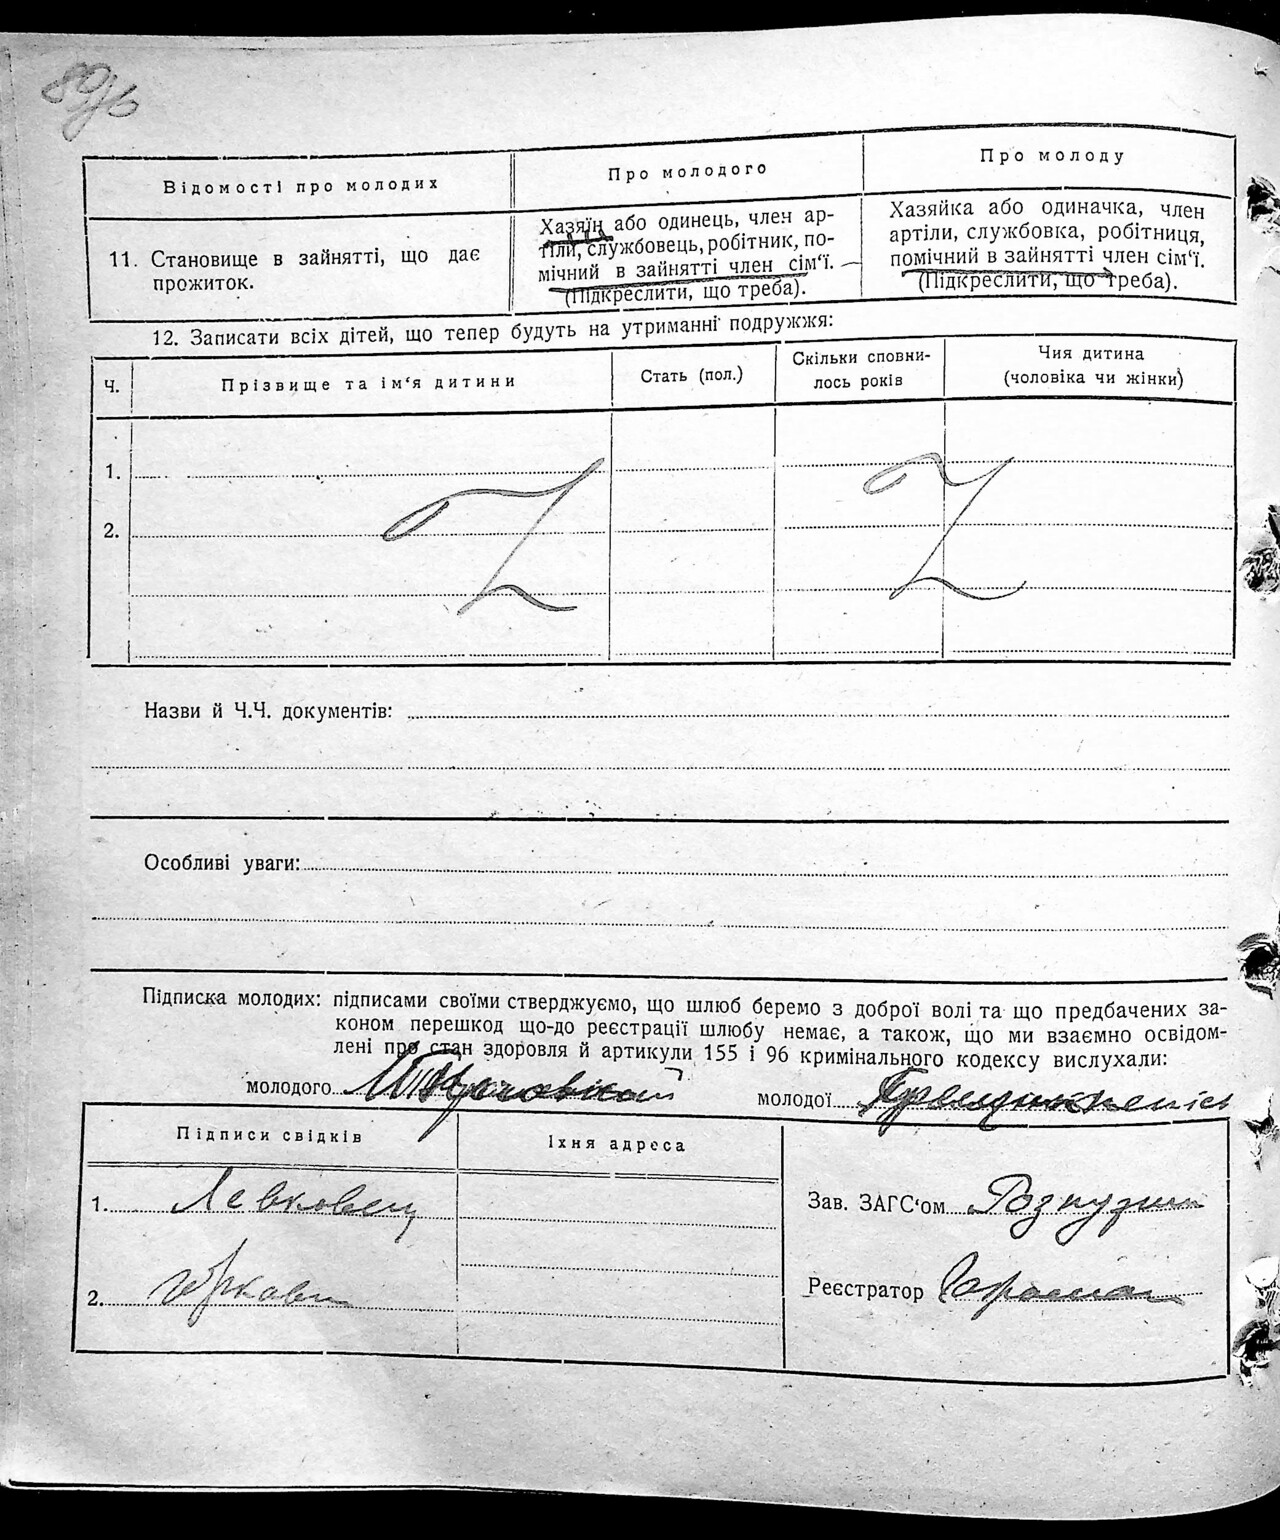 Відомості про молодих
Про молодого
Про молоду
11. Становище в зайнятті, що дає
прожиток.
Хазяїн або одинець, член ар-
тіли, службовець, робітник, по-
мічний в зайнятті член сім‘ї.
(Підкреслити, що треба).
Хазяйка або одиначка, член
артіли, службовка, робітниця,
помічний в зайнятті член сім‘ї.
(Підкреслити, що треба).
12. Записати всіх дітей, що тепер будуть на утриманні подружжя:
Ч.
Прізвище та ім‘я дитини
Стать (пол.)
Скільки сповни-
лось років
Чия дитина
(чоловіка чи жінки)
1.
2.
Назви й Ч.Ч. документів:
Особливі уваги:
Підписка молодих: підписами своїми стверджуємо, що шлюб беремо з доброї волі та що предбачених за-
коном перешкод що-до реєстрації шлюбу немає, а також, що ми взаємно освідом-
лені про стан здоровля й артикули 155 і 96 кримінального кодексу вислухали:
молодого
молодої
Підписи свідків
Їхня адреса
1. Левковец
2.
Зав. ЗАГС‘ом
Реєстратор